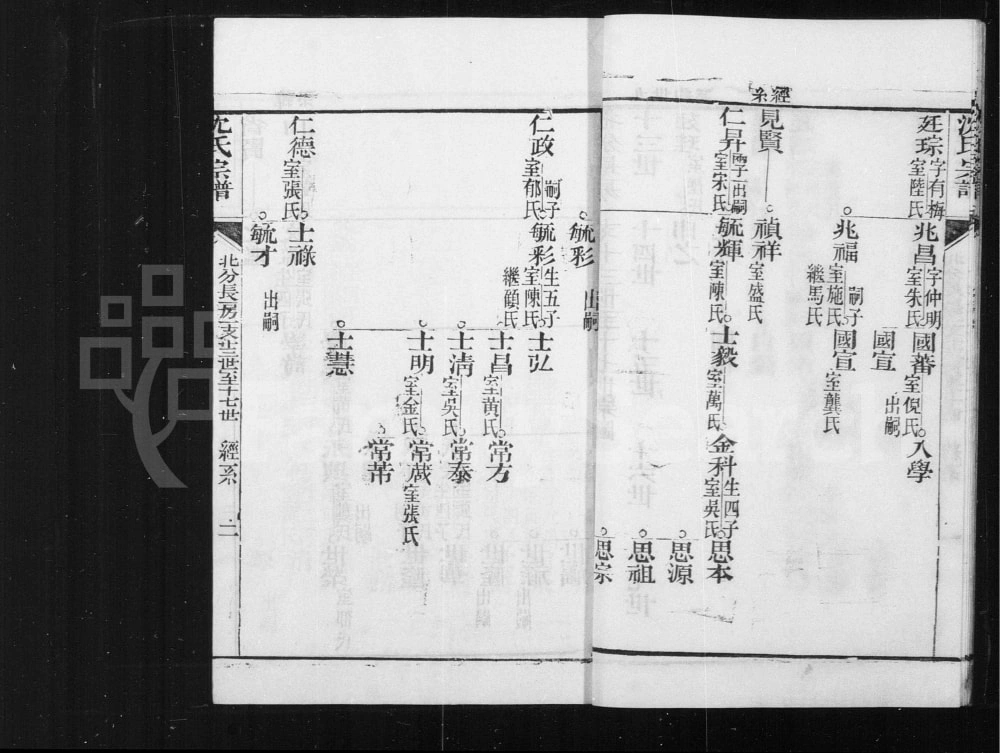 沈氏宗譜
廷琮 字有梅 室陸氏 兆昌 字仲明 室朱氏 國蕃 室倪氏 入學
國宣 出嗣
兆福 嗣子 室施氏 國宣 室龔氏
繼馬氏
經系
見賢 禎祥 室盛氏
仁昇 室宋氏 毓輝 室陳氏 士毅 室萬氏 金科 生四子 室吳氏 思本
思源
思祖
思宗
毓彩 出嗣
仁政 嗣子 室郁氏 毓彩 生五子 室陳氏 士弘
繼顧氏
士昌 室黃氏 常方
士淸 室吳氏 常泰
士明 室金氏 常葴 室張氏
常芾
士慧
仁德 室張氏 士祿
毓才 出嗣
沈氏宗譜 北分長房一支廿三世至十七世 經系 二